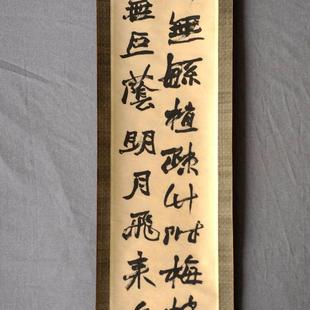 無緐植疎竹梅
無巨蔭明月飛来